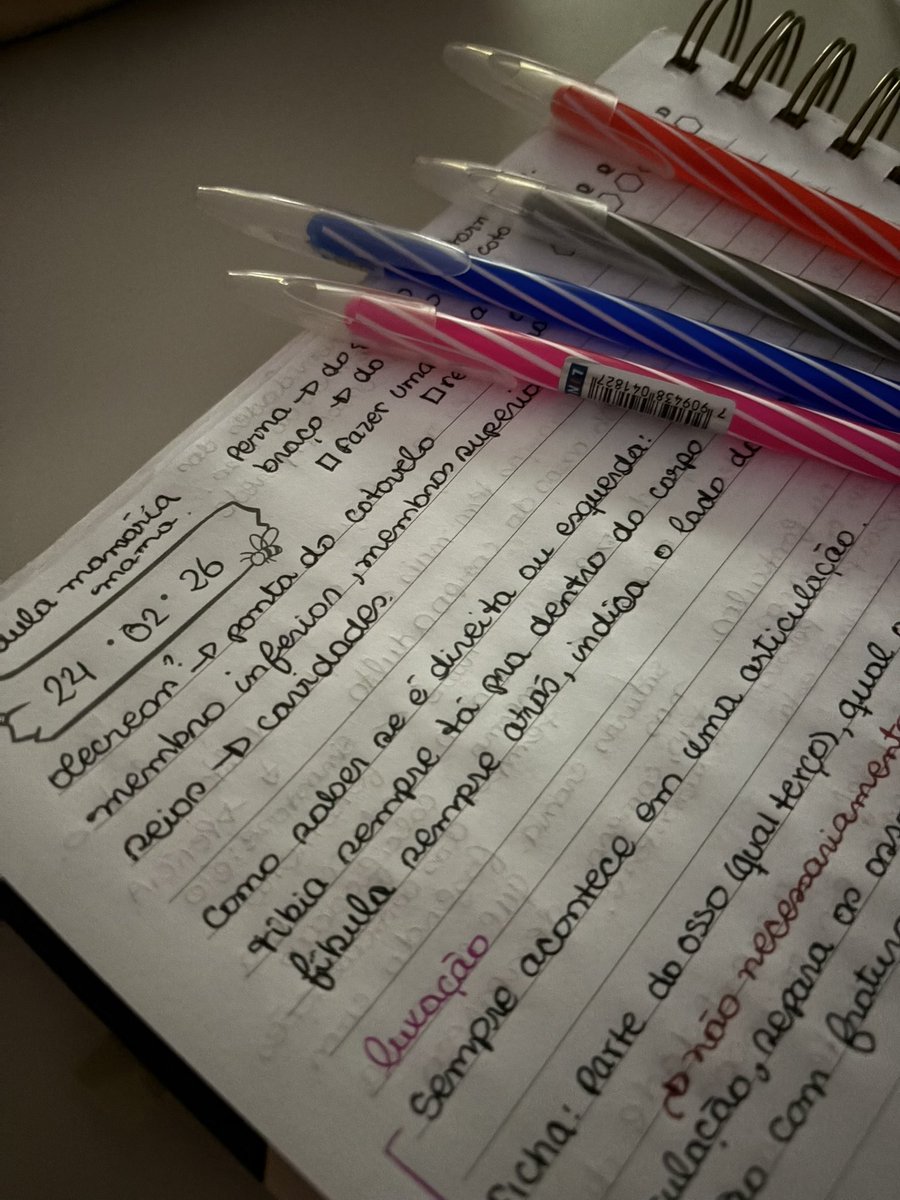 aula mamária
mama.
24 · 02 · 26
perna → do
braço → do
□ Fazer uma
olecreon? → ponta do cotovelo
membro inferior, membros superio
seios → cavidades.
Como saber se é direita ou esquerda:
tíbia sempre tá pra dentro do corpo
fíbula sempre atrás, indica o lado do
luxação
Sempre acontece em uma articulação.
Ficha: Parte do osso (qual terço), qual
→ não necessariamente
ulação, separa os oss
com fratura
7 909438 041827